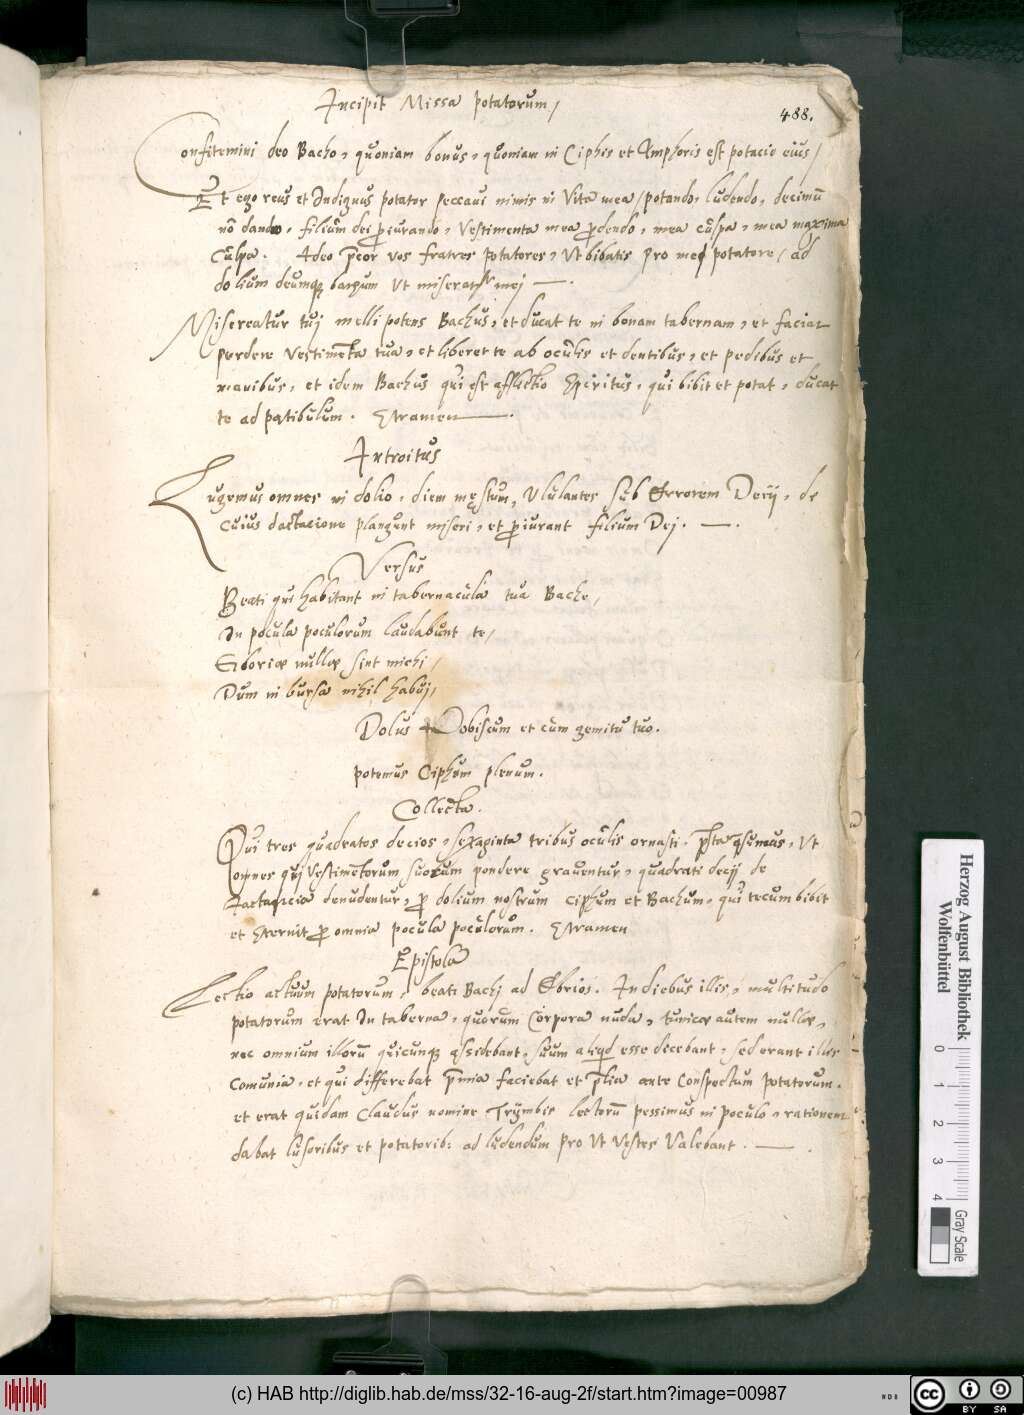 Incipit Missa potatorum/
488.
Confitemini deo Bacho, quoniam bonus, quoniam in Ciphis et Amphoris est potacio eius/
Et ego reus et Indignus potator peccaui nimis in Vita mea/potando, ludendo, decimū
nō dando, filiūm dei piurando, Vestimenta mea pdendo, mea cūlpa, mea maxima
Cūlpa. Adeo pcor vos fratres potatores, Vt bibatis pro me potatore/ ad
dolium deumq Vt miseratr mej —.
Misereatur tuj melli potens Bachus, et ducat te in bonam tabernam, et faciat
perdere Vestimēta tua, et liberet te ab ocūlis et dentibus, et pedibus et
manibus, et idem Bachus qui est afflictio Spiritus, qui bibit et potat, ducat
te ad patibulum. Stramen —.
Introitus
Lugemus omnes in dolio, diem mestum, Vlulantes sub Errorem Decij, de
cuius iactacione plangunt miseri, et piurant filium Dej. —.
Versus
Beati qui habitant in tabernacula tua Bache/
In pocula poculorum laudabunt te/
Ciboriæ nullæ sint michi/
Dum in bursa nihil habuj/
Dolus Vobiscum et cūm gemitū tuo.
potemus Ciphum plenum.
Collecta.
Qui tres quadratos decios, sexaginta tribus ocūlis ornasti. psta qsumus, Vt
omnes qui Vestimētorum suorum pondere grauentur, quadrati decij de
denudentur, p dolium nostrum Ciphum et Bachum, qui tecum bibit
et sternit p omnia pocula poculorum. Stramen
Epistola
Lectio actuum potatorum, beati Bachj ad Ebrios. In diebus illis, multitudo
potatorum erat In taberna, quorum Corpora nuda, tunicæ autem nullæ,
nec omnium illorū quicunq assidebant, suum aliqd esse dicebant, sed erant illis
Comunia, et qui differebat pmia faciebat et plia ante Conspectum potatorum.
et erat quidam Claudus nomine pessimus in poculo, rationem
dabat lusoribus et potatorib: ad ludendum pro Vt Vestes Valebant. —.
Herzog August Bibliothek
Wolfenbüttel
0 1 2 3 4
Gray Scale
(c) HAB http://diglib.hab.de/mss/32-16-aug-2f/start.htm?image=00987
WDB
cc BY SA